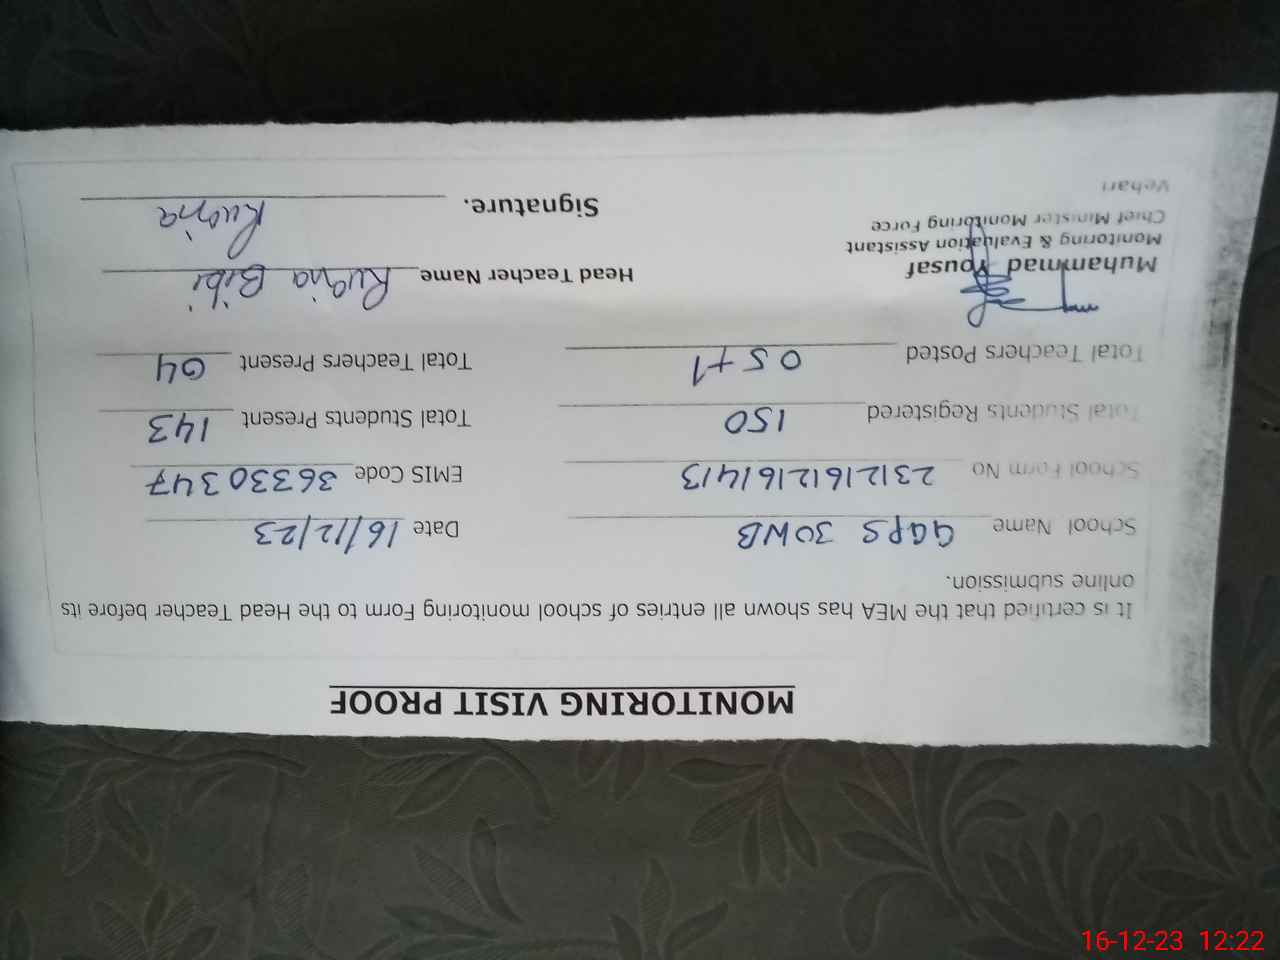 MONITORING VISIT PROOF
It is certified that the MEA has shown all entries of school monitoring Form to the Head Teacher before its
online submission.
School Name GGPS 30WB Date 16/12/23
School Form No 23121612161413 EMIS Code 36330347
Total Students Registered 150 Total Students Present 143
Total Teachers Posted 05+1 Total Teachers Present 04
Muhammad Yousaf Head Teacher Name Ruqia Bibi
Monitoring & Evaluation Assistant
Chief Minister Monitoring Force Signature. Ruqia
Vehari
16-12-23 12:22